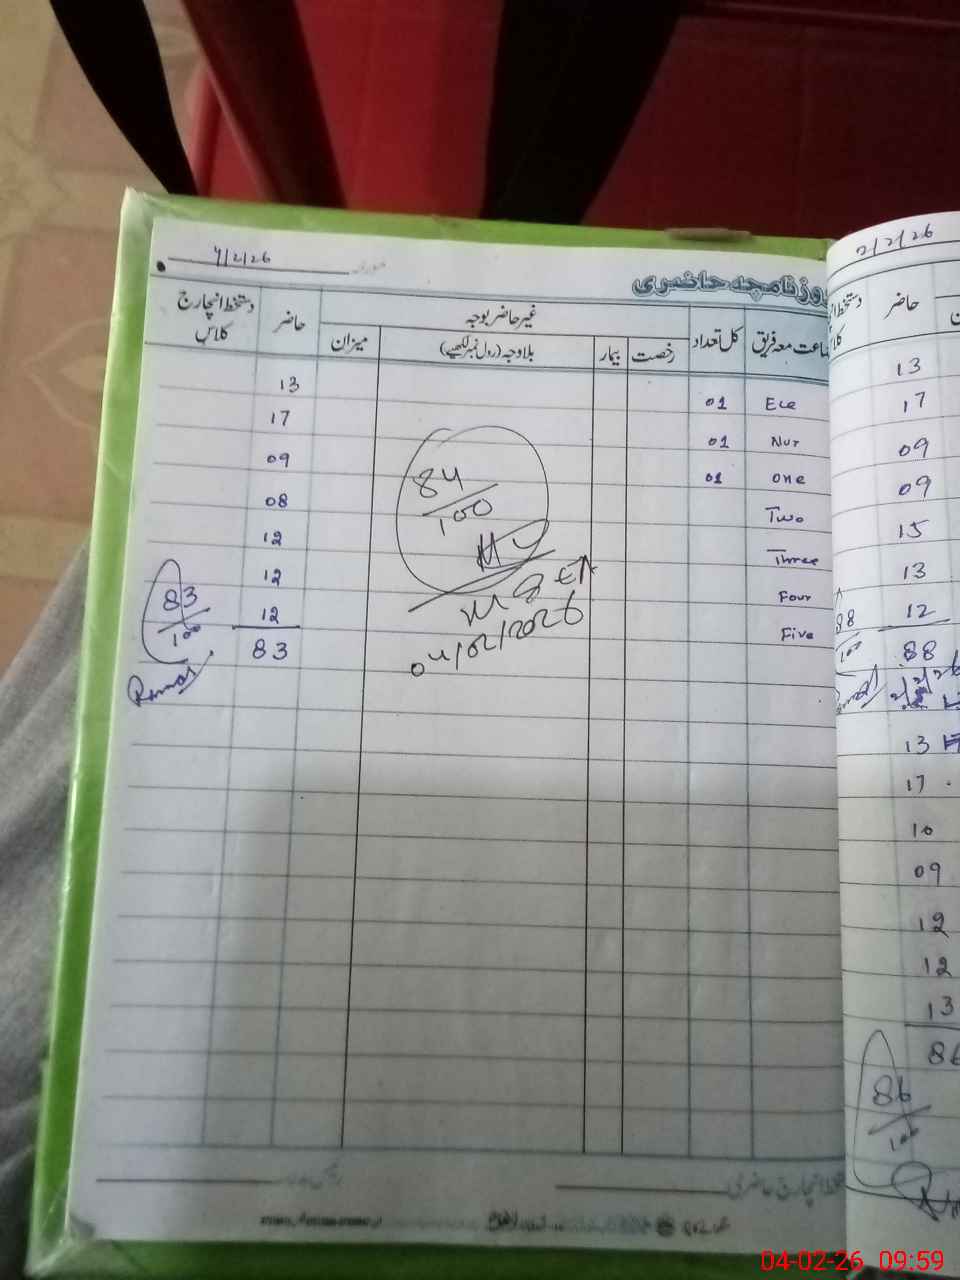 4/2/26
روزنامچہ حاضری
جماعت معہ فریق کل تعداد غیر حاضر بوجہ حاضر دستخط انچارج کلاس
رخصت بیمار بلاوجہ (رول نمبر لکھیے) میزان
Ece 01 13
Nur 01 17
One 01 09
Two 08
Three 12
Four 12
Five 12
83
83/100
84/100
04/02/2026
2/2/26
حاضر
13
17
09
09
15
13
12
88
88/100
13
17
10
09
12
12
13
86
86/100
04-02-26 09:59